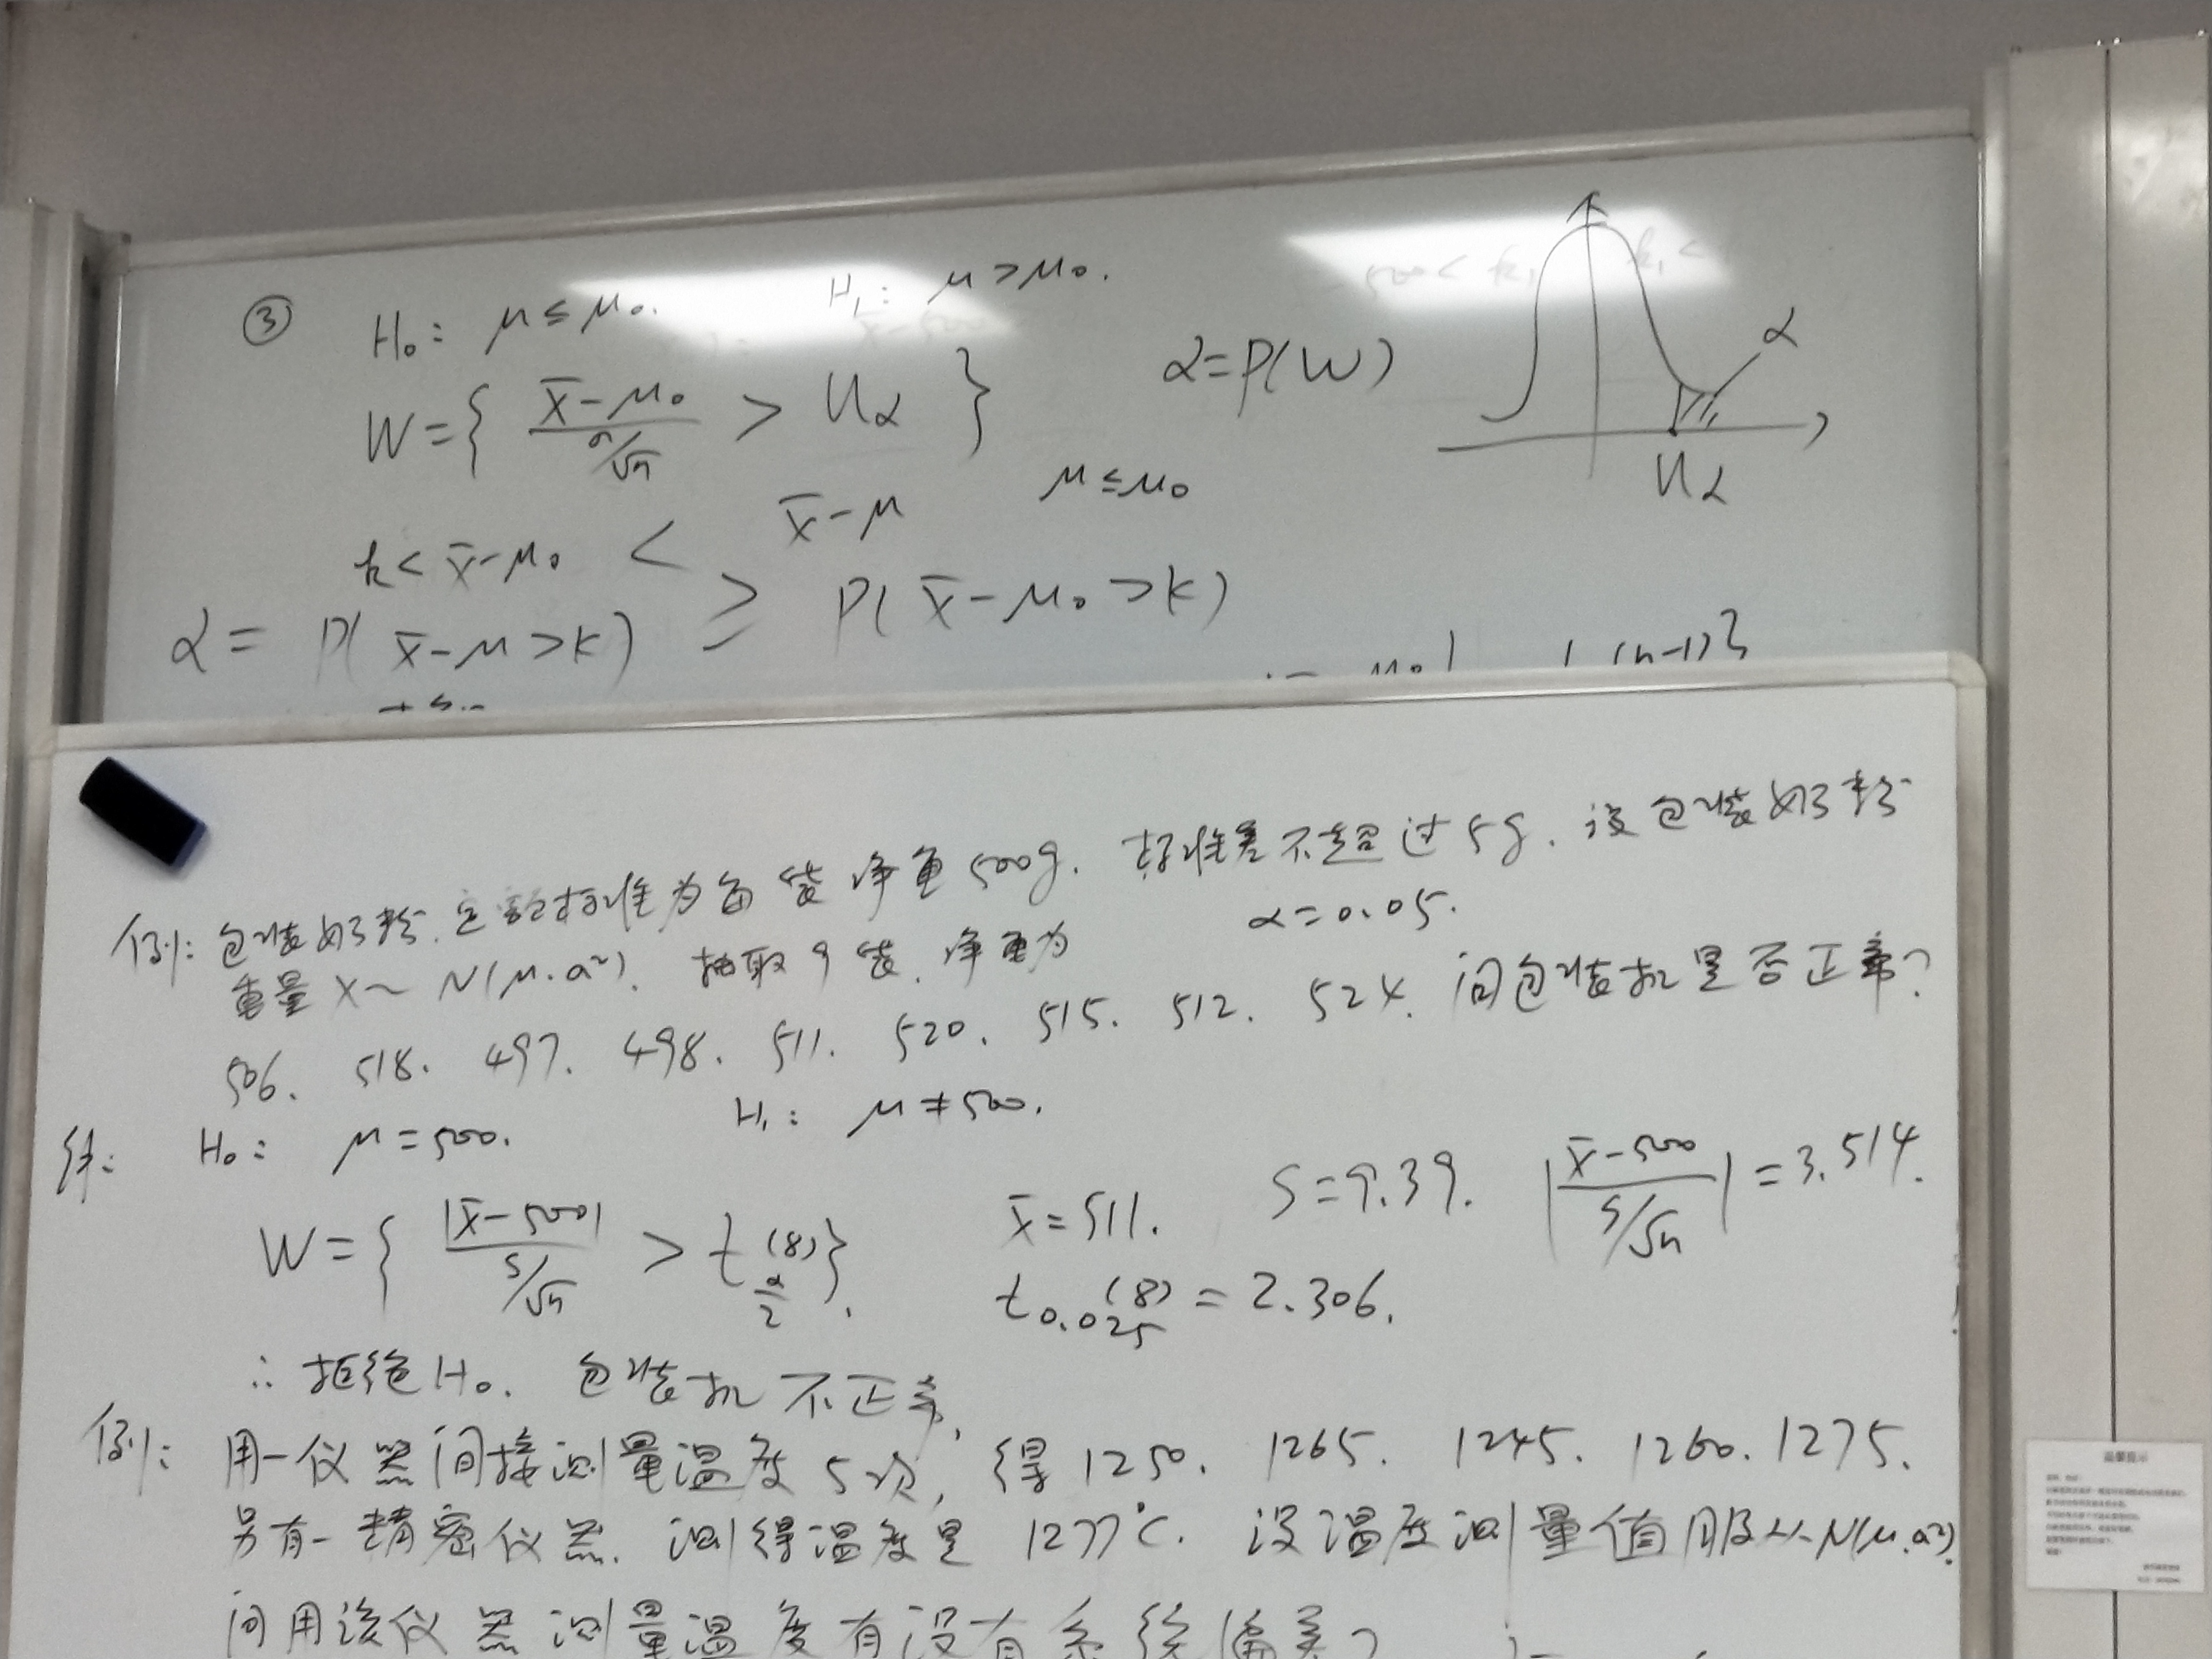 ③ H₀: μ≤μ₀. H₁: μ>μ₀.
W={ (x̄-μ₀)/(σ/√n) > u_α } α=P(W) α
u_α
k< x̄-μ₀ < x̄-μ μ≤μ₀
α= P( x̄-μ>k) ≥ P( x̄-μ₀>k)
(n-1)}
例: 包装奶粉. 定额标准为每袋净重500g. 标准差不超过5g. 设包装奶粉
重量 X~N(μ.σ²). 抽取9袋. 净重为 α=0.05.
506. 518. 497. 498. 511. 520. 515. 512. 524. 问包装机是否正常?
解: H₀: μ=500. H₁: μ≠500.
W={ |x̄-500|/(s/√n) > t_{α/2}(8)}. x̄=511. S=9.39. |(x̄-500)/(s/√n)|=3.514.
t_{0.025}(8)=2.306.
∴拒绝H₀. 包装机不正常.
例: 用一仪器间接测量温度5次, 得1250. 1265. 1245. 1260. 1275.
另有一精密仪器. 测得温度是1277°C. 设温度测量值服从N(μ.σ²).
问用该仪器测量温度有没有系统偏差?